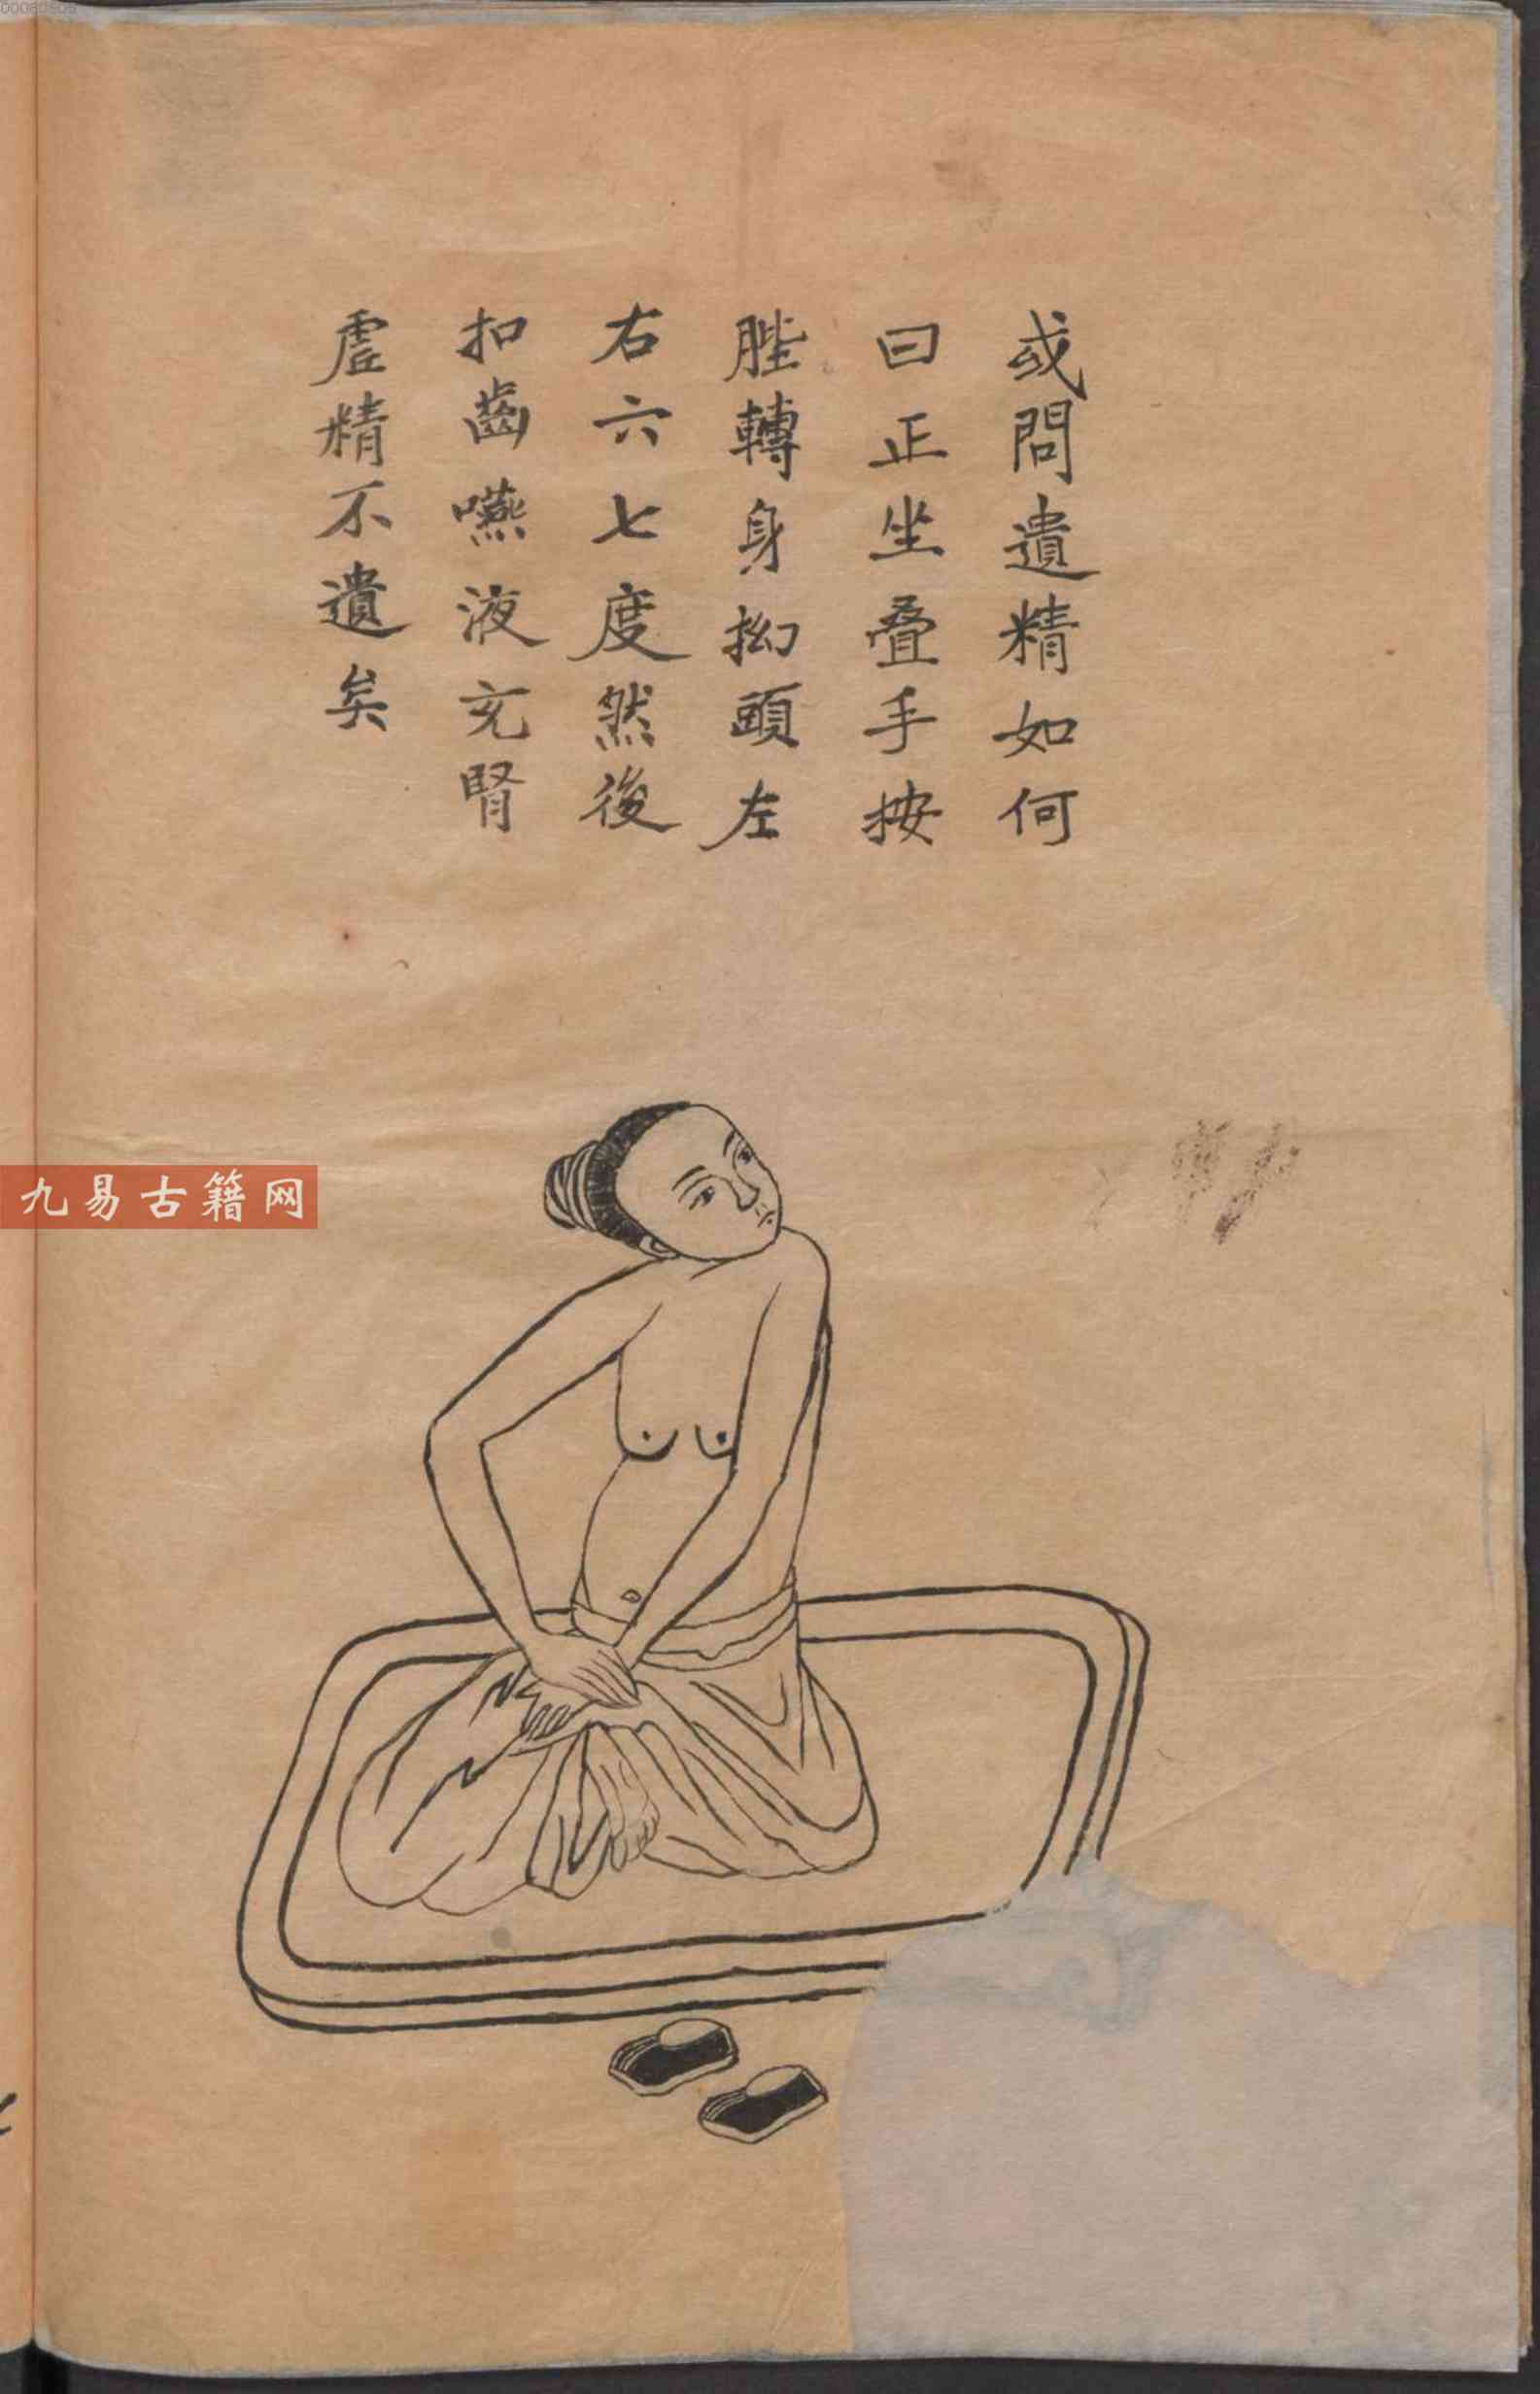 或問遺精如何
曰正坐叠手按
䏶轉身拗頭左
右六七度然後
扣齒嚥液充腎
虗精不遺矣
九易古籍网